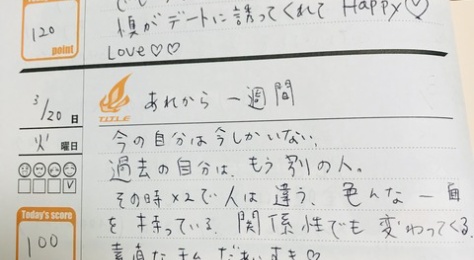 120
point
俣がデートに誘ってくれて Happy♡
Love♡♡
3/20 日
TITLE
あれから 一週間
火 曜日
今の自分は今しかいない。
過去の自分は、もう別の人。
その時×2で人は違う。色んな一面
を持っている。関係性でも変わってくる。
Today's score
100